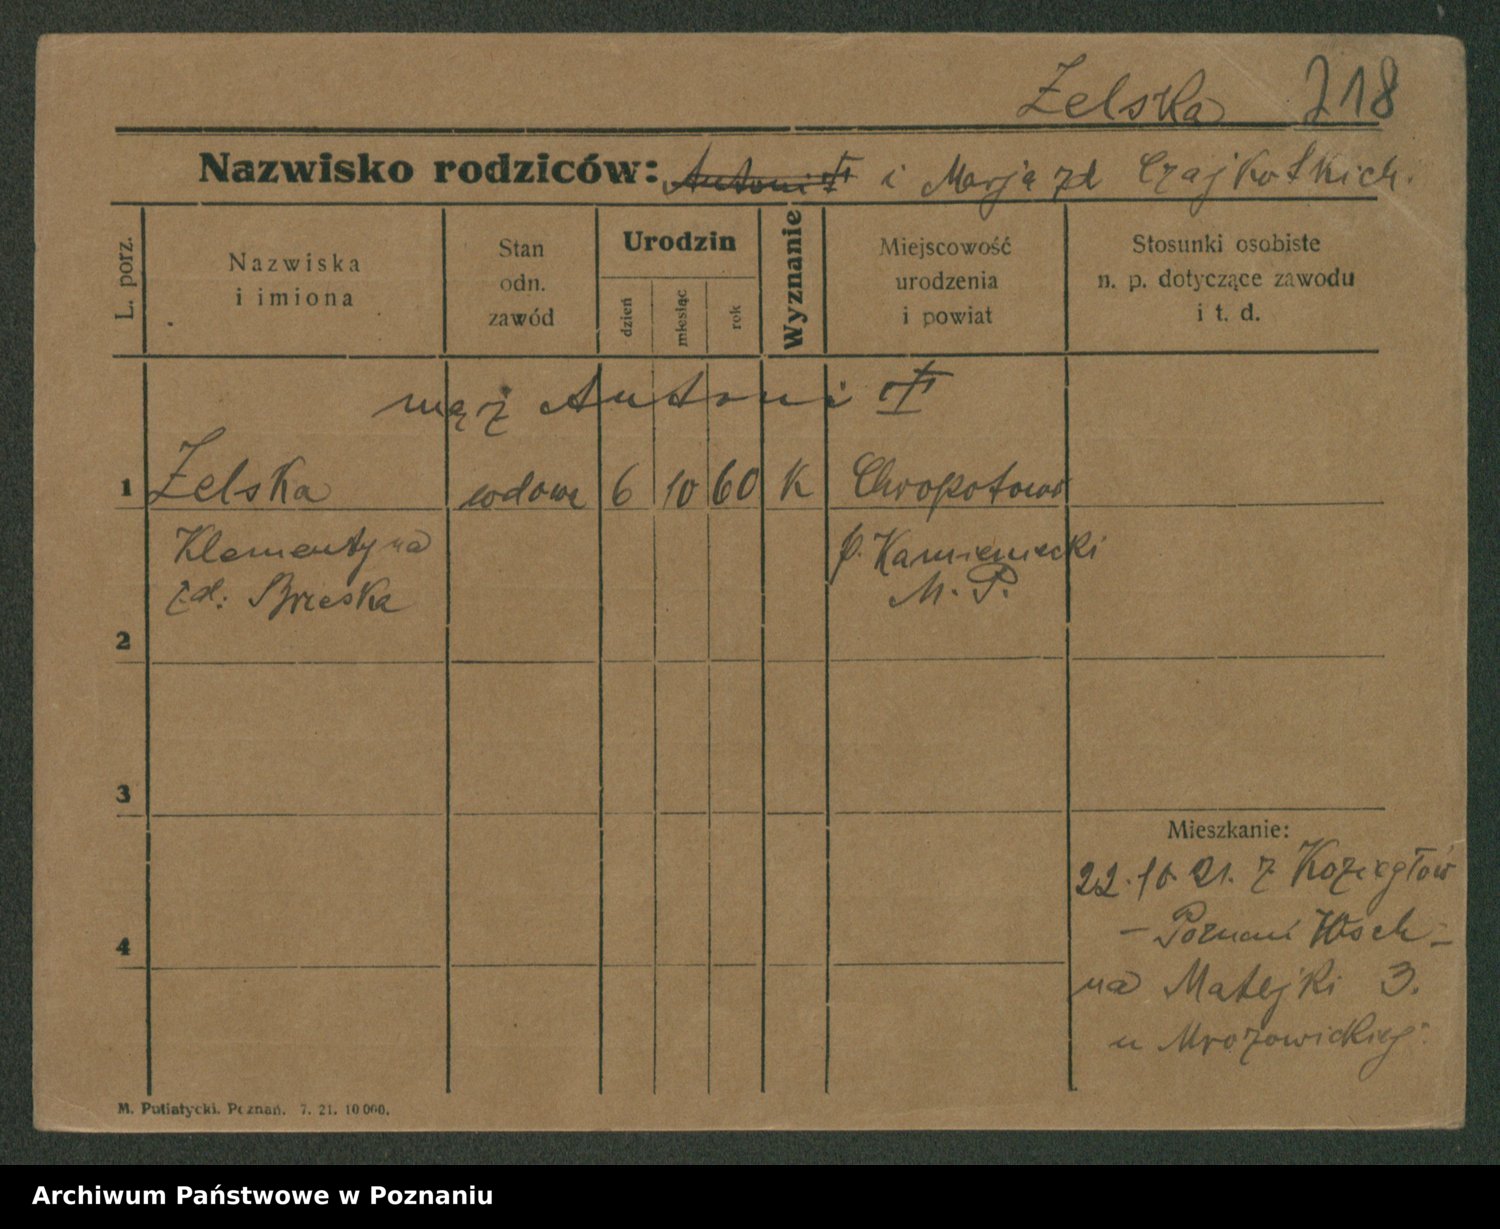 Zelska 218
Nazwisko rodziców: Antoni † i Marja zd Czajkowskich.
L. porz.
Nazwiska
i imiona
Stan
odn.
zawód
Urodzin
dzień
miesiąc
rok
Wyznanie
Miejscowość
urodzenia
i powiat
Stosunki osobiste
n. p. dotyczące zawodu
i t. d.
mąż Antoni †
1 Zelska wdowa 6 10 60 K Chropotowo
Klementyna p. Kamieniecki
zd: Brzeska M. P.
2
3
Mieszkanie:
22.10.21. z Koziegłów
4 - Poznań Wsch -
na Matejki 3.
u Mrozowickiej
M. Putiatycki. Poznań. 7. 21. 10 000.
Archiwum Państwowe w Poznaniu